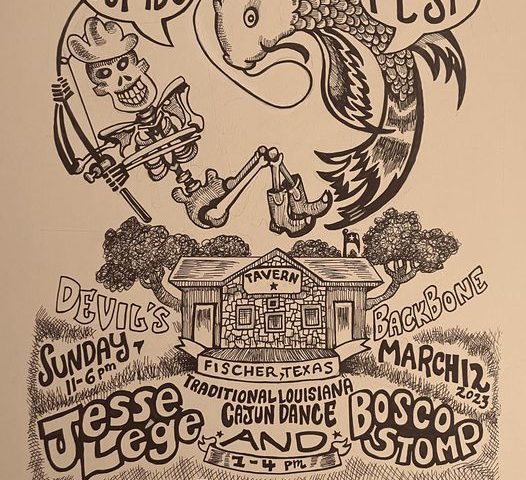 FEST
TAVERN
DEVIL'S
BACKBONE
FISCHER, TEXAS
SUNDAY
11-6pm
MARCH 12
2023
TRADITIONAL LOUISIANA
CAJUN DANCE
Jesse
Lége
AND
BOSCO
STOMP
1-4 pm